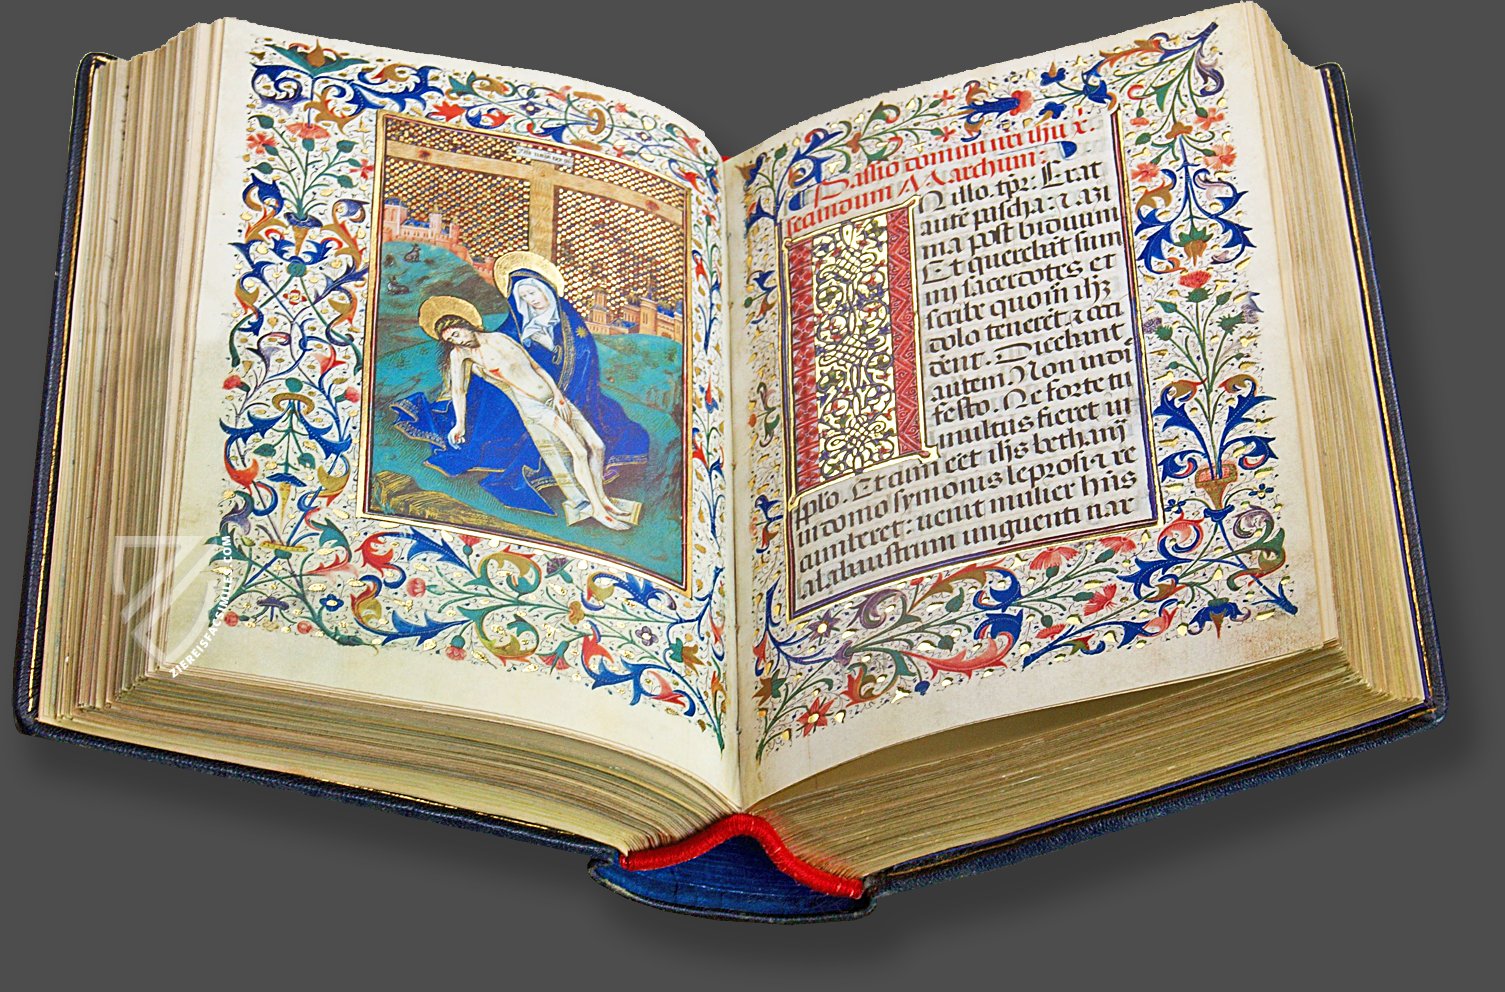 Passio domini nr̄i ihū x̄.
secundum Marchum.
In illo. tp̄r. Erat
autē pascha: ⁊ azi
ma post biduum
Et querebāt sum
mi sacerdotes et
scribe quom̄ ihꝫ
dolo tenerēt, ⁊ occi
dent. Dicebant
autem. Non in di
festo. Ne forte tu
multus fieret in
pplo. Et cum eēt ihs̄ bethanij
in domo symonis leprosi. ⁊ re
cumberet: uenit mulier hn̄s
alabaustrum unguenti nar
ZIEREISFACSIMILE.COM